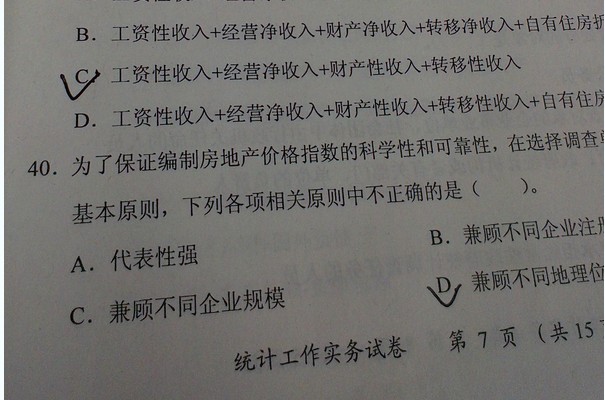 B. 工资性收入+经营净收入+财产净收入+转移净收入+自有住房折
C. 工资性收入+经营净收入+财产性收入+转移性收入
D. 工资性收入+经营净收入+财产性收入+转移性收入+自有住房
40. 为了保证编制房地产价格指数的科学性和可靠性，在选择调查
基本原则，下列各项相关原则中不正确的是（　　）。
A. 代表性强
B. 兼顾不同企业注册
C. 兼顾不同企业规模
D. 兼顾不同地理位
统计工作实务试卷 第 7 页 （共 15